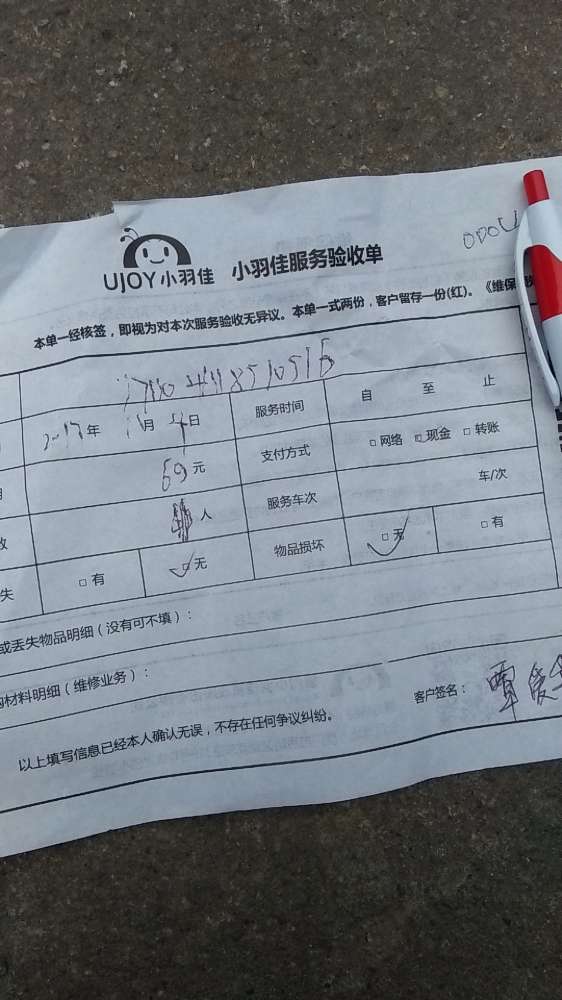 UJOY 小羽佳 小羽佳服务验收单
本单一经核签，即视为对本次服务验收无异议。本单一式两份，客户留存一份(红)。《维保
2017年 月 日 服务时间 自 至 止
69元 支付方式 □网络 □现金 □转账
人 服务车次 车/次
失 □有 □无 物品损坏 □无 □有
或丢失物品明细（没有可不填）：
材料明细（维修业务）：
客户签名： 覃
以上填写信息已经本人确认无误，不存在任何争议纠纷。